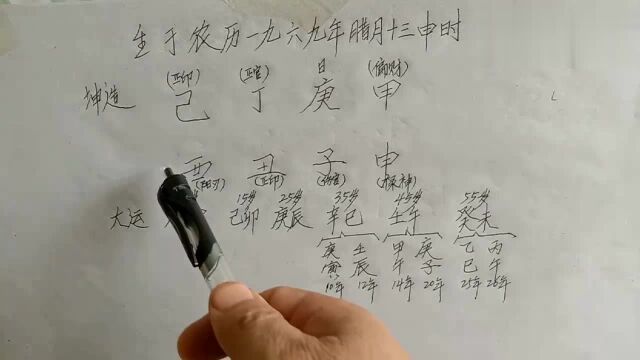 生于农历一九六九年腊月十三申时
(正印) (正官) 日 (偏财)
坤造 己 丁 庚 甲
酉 丑 子 申
(阳刃) (正印) (伤官) (禄神)
15岁 25岁 35岁 45岁 55岁
大运 己卯 庚辰 辛巳 壬午 癸未
庚 壬 甲 庚 乙 丙
寅 辰 午 子 巳 午
10年 12年 14年 20年 25年 26年